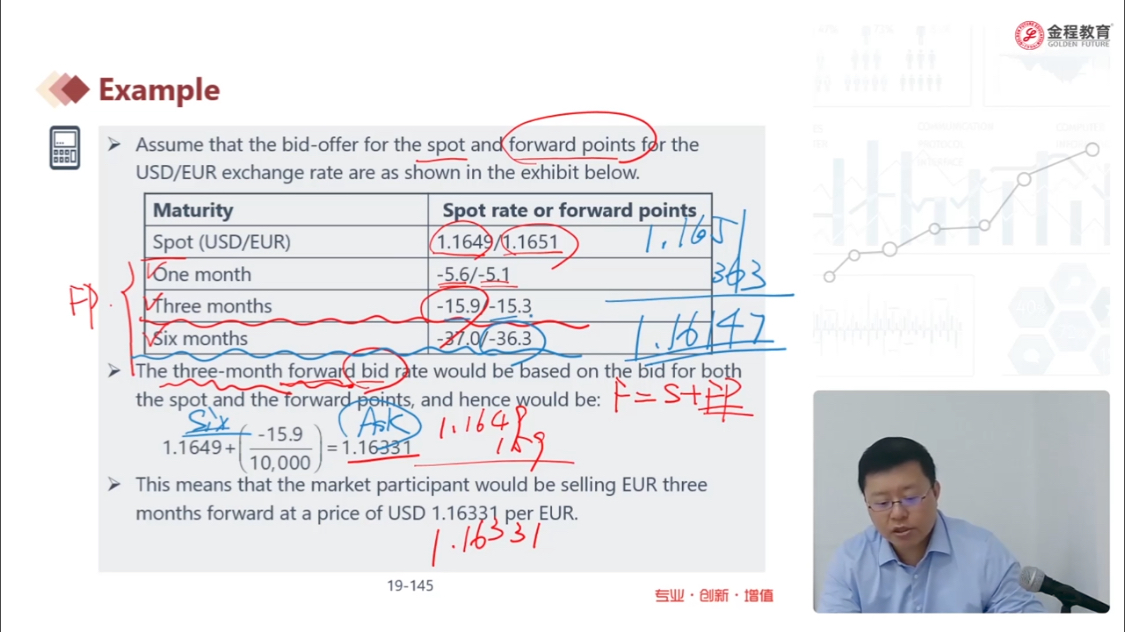 金程教育
GOLDEN FUTURE
Example
Assume that the bid-offer for the spot and forward points for the
USD/EUR exchange rate are as shown in the exhibit below.
Maturity Spot rate or forward points
Spot (USD/EUR) 1.1649/1.1651
One month -5.6/-5.1
Three months -15.9/-15.3
Six months -37.0/-36.3
1.1651
363
1.16147
FP
The three-month forward bid rate would be based on the bid for both
the spot and the forward points, and hence would be:
F = S + FP
Six
Ask
1.1649+(-15.9/10,000)=1.16331
1.1649
159
This means that the market participant would be selling EUR three
months forward at a price of USD 1.16331 per EUR.
1.16331
19-145
专业·创新·增值